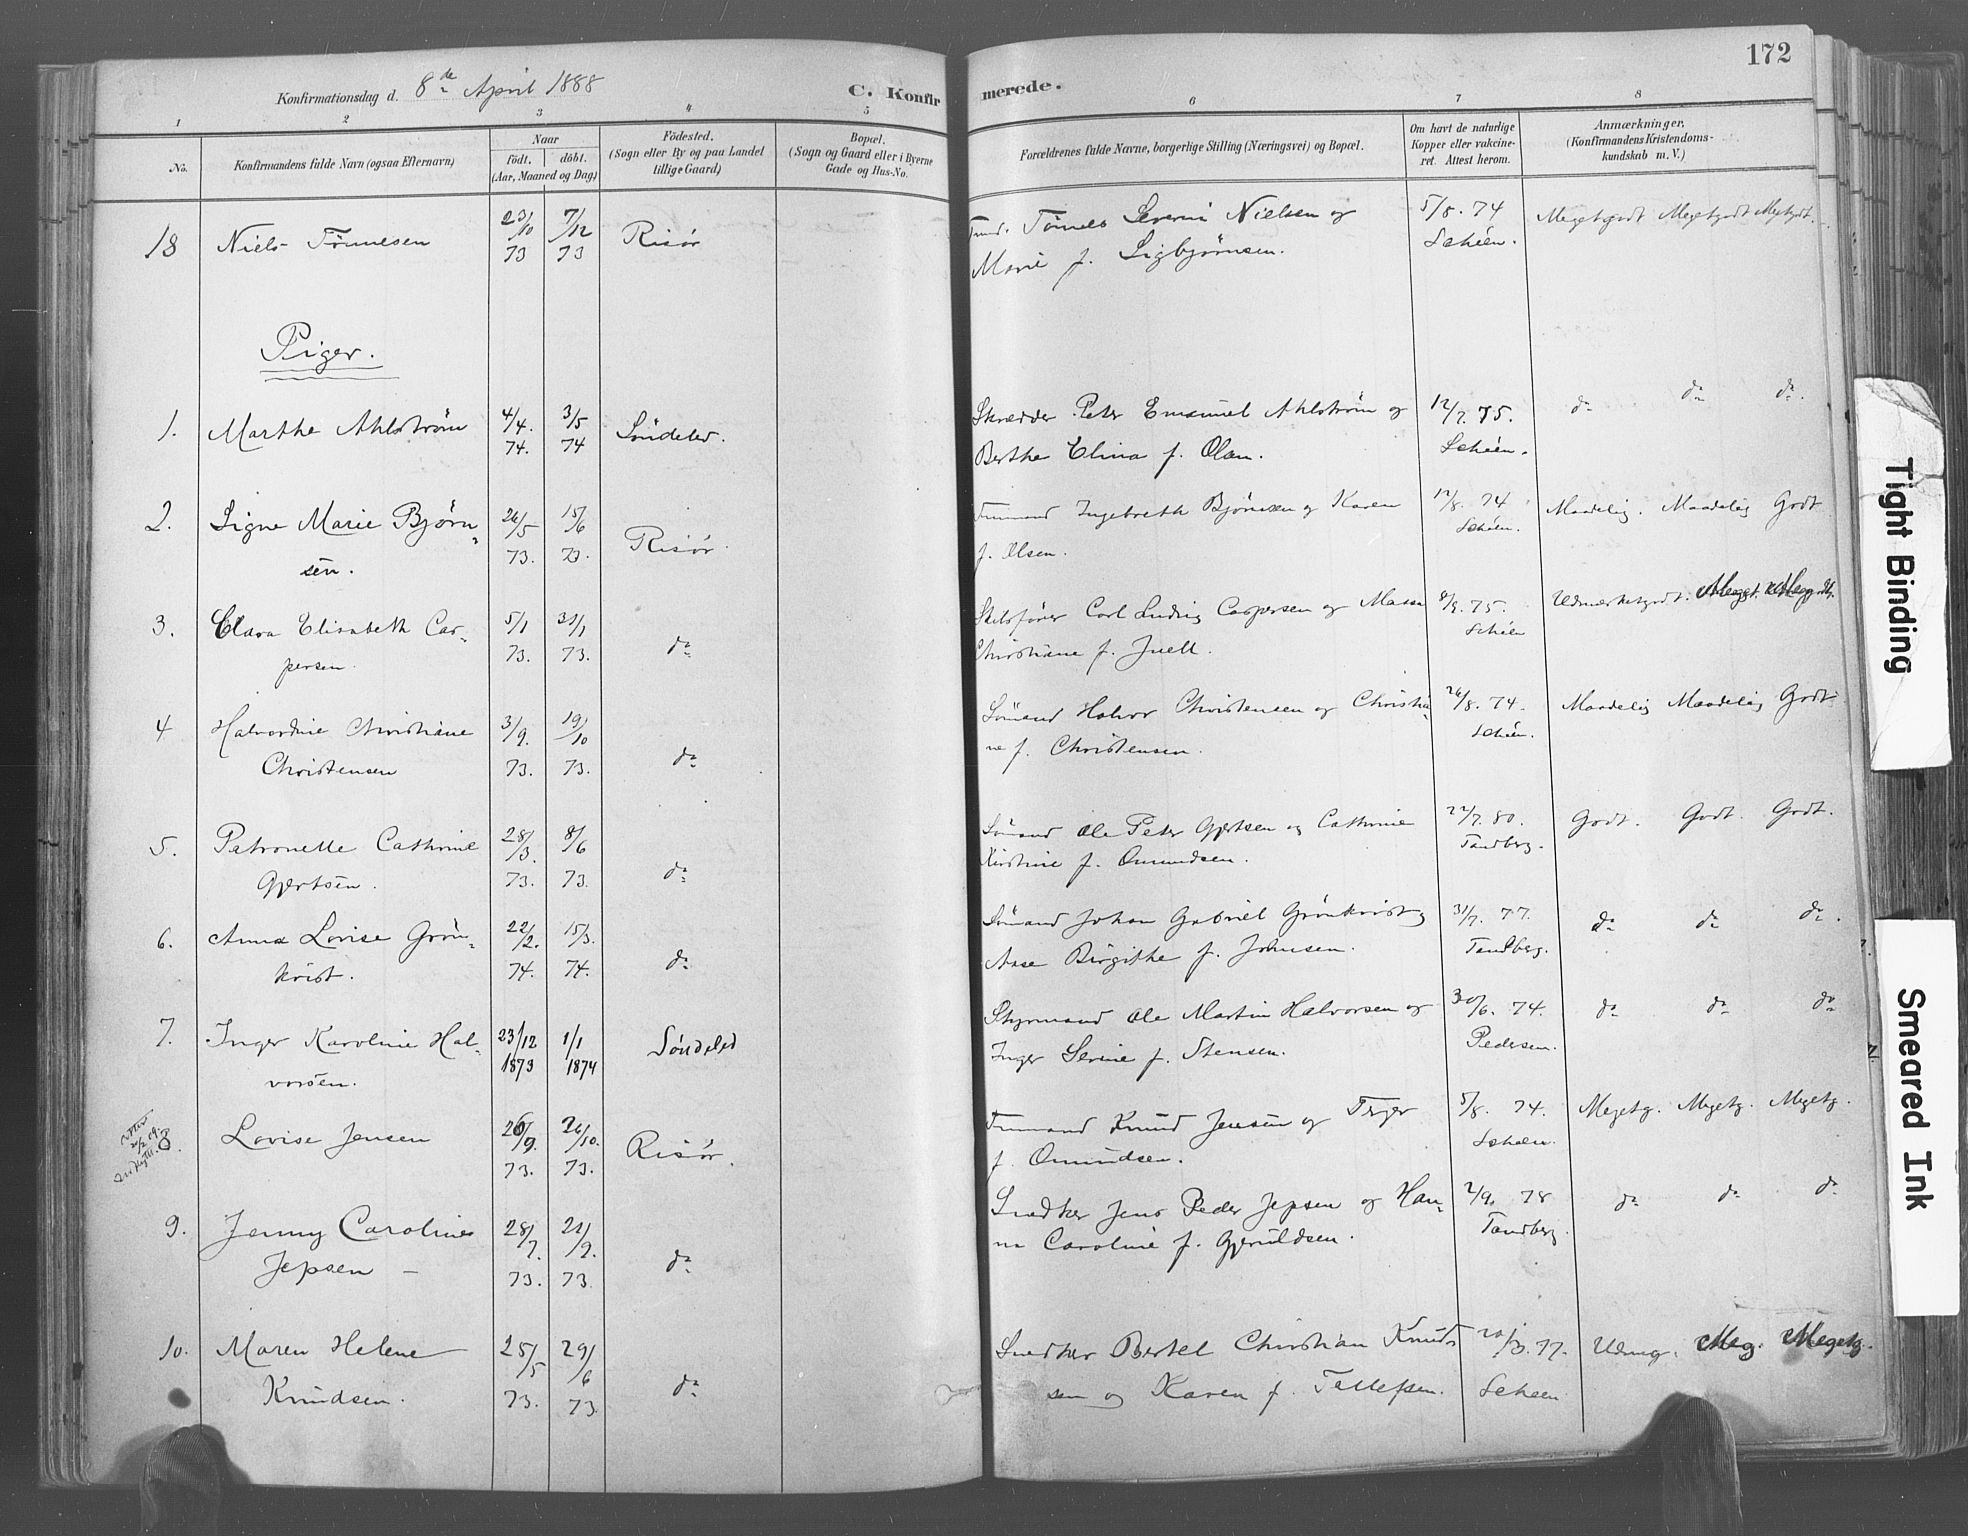 172
Konfirmationsdag d. 8de April 1888
C. Konfirmerede.
1 2 3 4 5 6 7 8
No.
Konfirmandens fulde Navn (ogsaa Efternavn)
Naar
födt. döbt.
(Aar, Maaned og Dag)
Födested.
(Sogn eller By og paa Landet
tillige Gaard)
Bopæl.
(Sogn og Gaard eller i Byerne
Gade og Hus-No.
Forældrenes fulde Navne, borgerlige Stilling (Næringsvei) og Bopæl.
Om havt de naturlige
Kopper eller vakcine-
ret. Attest herom.
Anmærkninger.
(Konfirmandens Kristendoms-
kundskab m. V.)
18 Niels Tönnesen 23/10 73 7/12 73 Risör
Tönnes Severin Nielsen og
Marie f. Sigbjörnsen.
5/8. 74
Schéen.
Megetgodt Megetgodt Megtgdt.
Piger.
1. Marthe Ahlström 4/4. 74. 3/5 74 Söndeled.
Skrædder Peter Emanuel Ahlström og
Berthe Elina f. Olsen.
12/7. 75.
Schéen.
do do do.
2. Signe Marie Björn-
sen.
26/5 73. 15/6 73. Risör.
Tmmand Ingebreth Björnsen og Karen
f. Olsen.
12/8. 74
Schéen.
Maadelig. Maadelig Godt
3. Clara Elisabeth Cas-
persen.
5/1 73. 31/1 73. do
Skibsförer Carl Ludvig Caspersen og
Christiane f. Juell.
8/9. 75.
Schéen
Udmærketgodt.
4 Halvordine Christiane
Christensen
3/9. 73. 19/10 73. do
Sömand Halvor Christensen og Christia-
ne f. Christensen.
26/8. 74.
Schéen.
Maadelig Maadelig Godt
5. Petronelle Cathrine
Gjertsen.
28/3. 73. 8/6 73. do
Sömand Ole Peter Gjertsen og Cathrine
Kirstine f. Omundsen.
22/7. 80.
Tandberg.
Godt. Godt. Godt.
6. Anna Lovise Grön-
kvist.
22/2. 74. 15/3. 74. do
Sömand Johan Gabriel Grönkvist og
Aase Birgithe f. Johnsen.
31/7. 77.
Tandberg.
do do do.
7. Inger Karoline Hal-
vorsen.
23/12 1873 1/1 1874 Söndeled
Styrmand Ole Martin Halvorsen og
Inger Serine f. Stensen.
30/6. 74.
Pedersen.
do do do
8. Lovise Jensen 26/9. 73. 26/10. 73. Risör.
Tmmand Knud Jensen og
f. Omundsen.
5/8. 74.
Schéen.
Megetg. Megetg. Megetg.
9. Jenny Caroline
Jepsen –
28/7. 73. 21/9. 73. do
Snedker Jens Peder Jepsen og Han-
na Caroline f. Gjeruldsen.
2/9. 78
Tandberg.
do do do
10. Maren Helene
Knudsen.
25/5 73. 29/6 73. do
Snedker Bertel Christian Knud-
sen og Karen f. Tellefsen.
77.
Schéen
Udmg. Meg. Megetg.
Tight Binding
Smeared Ink